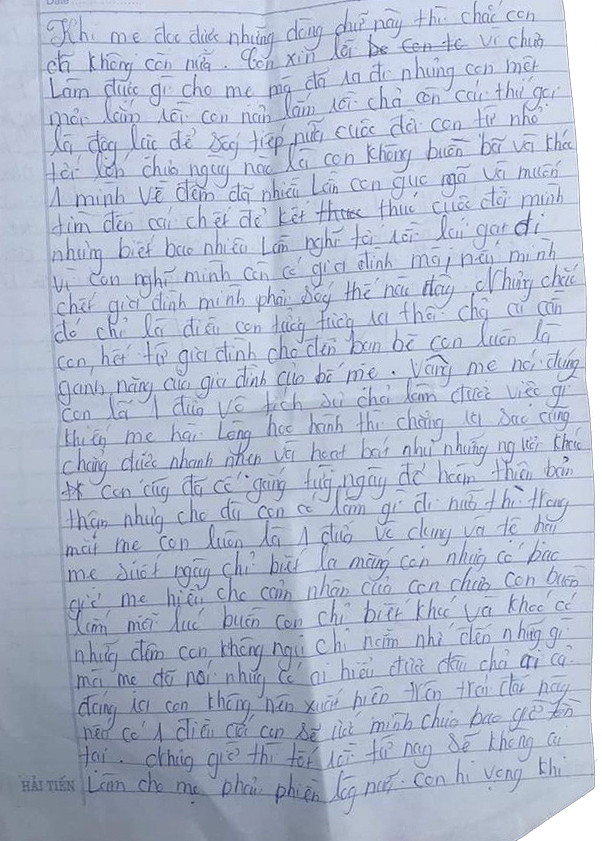 Khi mẹ đọc được những dòng chữ này thì chắc con
đã không còn nữa. Con xin lỗi bo con tc vì chưa
Làm được gì cho mẹ mà đã ra đi nhưng con mệt
mỏi lắm rồi con nản lắm rồi chả còn cái thứ gọi
là động lực để sống tiếp nữa cuộc đời con từ nhỏ
tới lớn chưa ngày nào là con không buồn bã và khóc
1 mình về đêm đã nhiều lần con gục ngã và muốn
tìm đến cái chết để kết thươc thúc cuộc đời mình
nhưng biết bao nhiêu lần nghĩ tới rồi lại gạt đi
vì con nghĩ mình còn có gia đình mà, nếu mình
chết gia đình mình phải sống thế nào đây. Nhưng chắc
đó chỉ là điều con tưởng tượng ra thôi chả ai cần
con, hết từ gia đình cho đến bạn bè con luôn là
gánh nặng của gia đình của bố mẹ. Vâng mẹ nói đúng
con là 1 đứa vô tích sự chả làm được việc gì
khiến mẹ hài lòng học hành thì chẳng ra sao cũng
chẳng được nhanh nhẹn và hoạt bát như những người khác
con cũng đã cố gắng từng ngày để hoàn thiện bản
thân nhưng cho dù con có làm gì đi nữa thì trong
mắt mẹ con luôn là 1 đứa vô dụng và tệ hại
mẹ suốt ngày chỉ biết la mắng con nhưng có bao
giờ mẹ hiểu cho cảm nhận của con chưa con buồn
lắm mỗi lúc buồn con chỉ biết khóc và khóc có
những đêm con không ngủ chỉ nằm nhớ đến những gì
mà mẹ đã nói nhưng có ai hiểu được đâu chả ai cả.
đáng ra con không nên xuất hiện trên trái đất này
nếu có 1 điều ước con sẽ ước mình chưa bao giờ tồn
tại. Nhưng giờ thì tốt rồi từ nay sẽ không ai
Làm cho mẹ phải phiền lòng nữa. con hi vọng khi
HẢI TIẾN